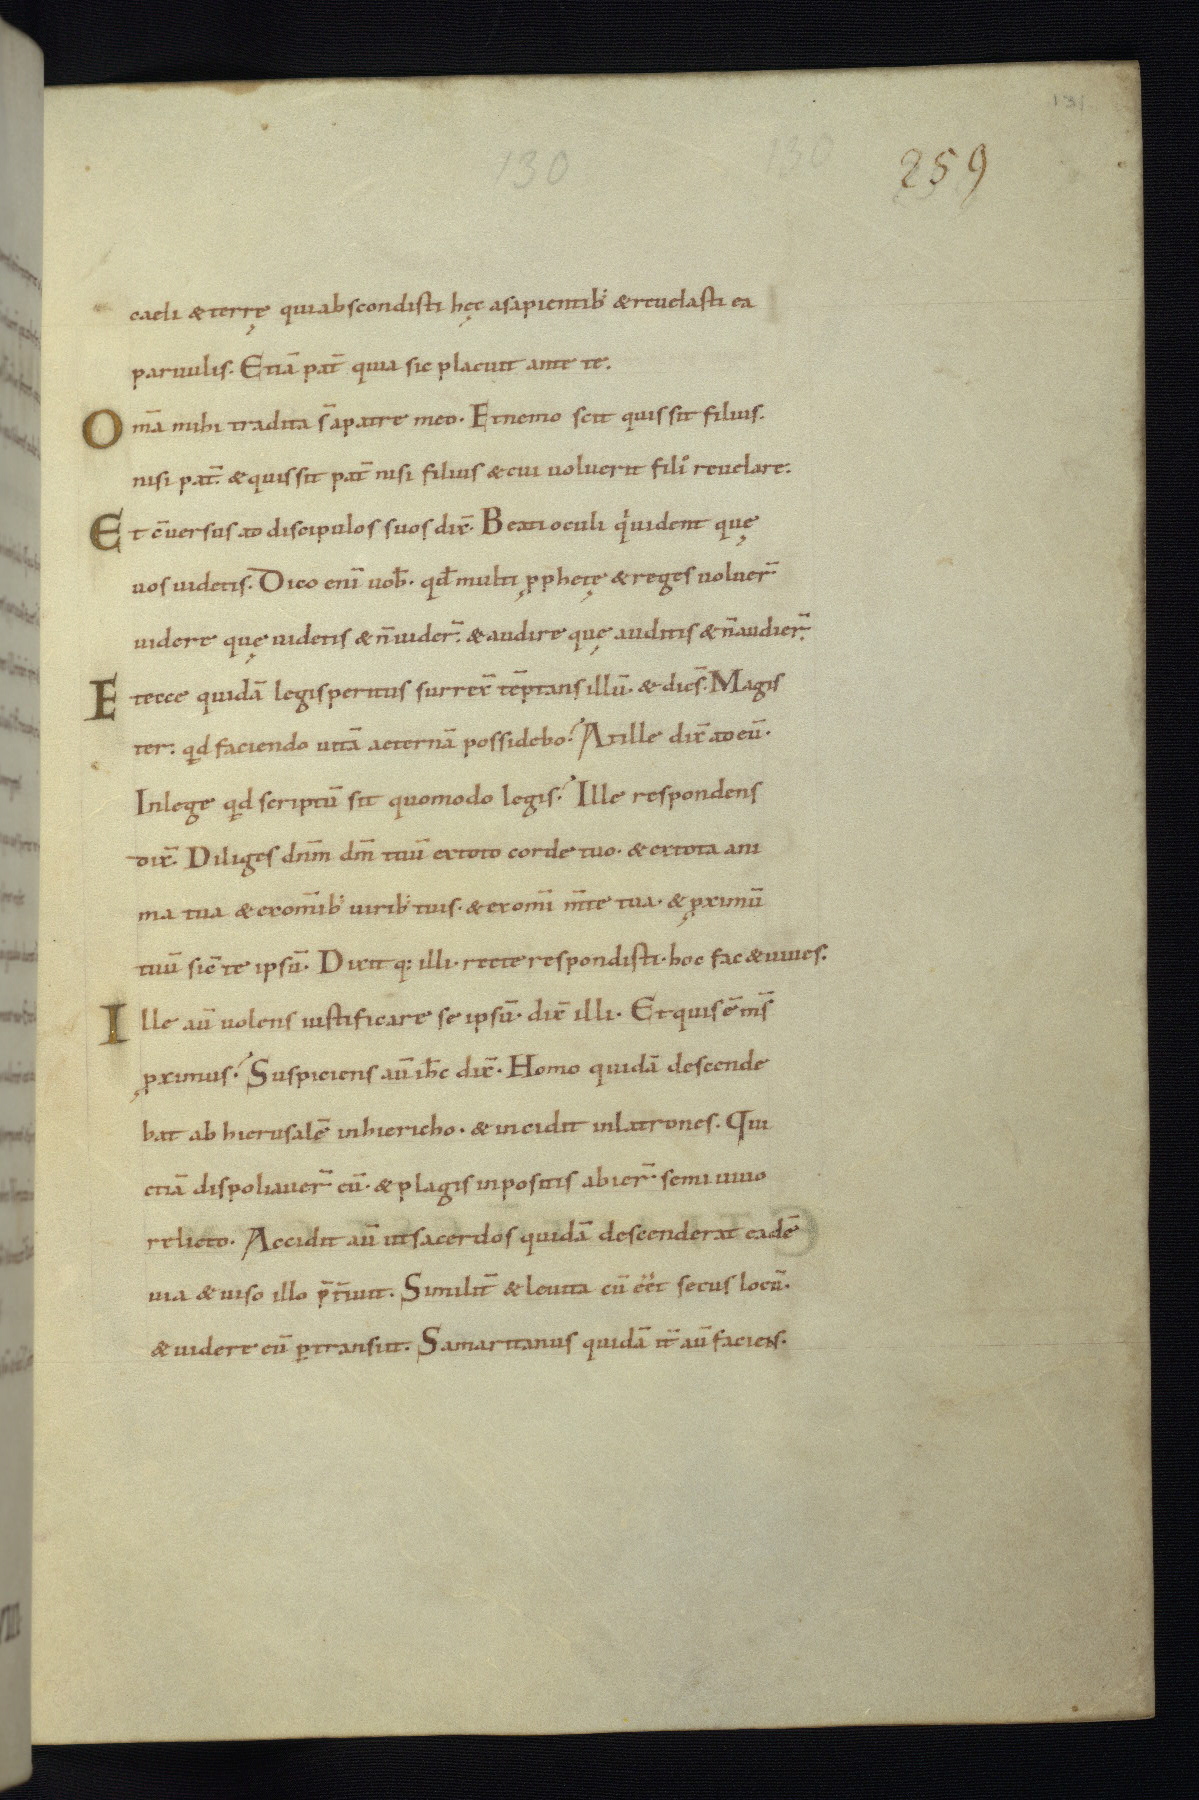 131
130 130 259
caeli & terrę qui abscondisti hęc a sapientib; & reuelasti ea
paruulis. Etiā pat̄ quia sic placuit ante te.
Om̄a mihi tradita s̄ a patre meo. Et nemo scit quis sit filius.
nisi pat̄. & quis sit pat̄ nisi filius & cui uoluerit fili᷒ reuelare.
Et c̄uersus ad discipulos suos dix̄. Beati oculi qͥ uident quę
uos uidetis. Dico eni̅ uob̄. qd̄ multi ꝓphetę & reges uoluer̄
uidere quę uidetis & n̄ uider̄. & audire quę auditis & n̄ audier̄.
Et ecce quidā legisperitus surrex̄ tēptans illū. & dicēs. Magis
ter. qd faciendo uitā aeternā possidebo? At ille dix̄ ad eū.
In lege qd scriptū sit quomodo legis? Ille respondens
dix̄. Diliges dn̄m dm̄ tuū ex toto corde tuo. & ex tota ani
ma tua & ex om̄ib; uirib; tuis. & ex om̄i m̄te tua. & ꝓximū
tuū sic̄ te ipsū. Dixit q; illi. recte respondisti. hoc fac & uiues.
Ille aū uolens iustificare se ipsū. dix̄ illi. Et quis ē ms̄
ꝓximus? Suspiciens aū ih̄c dix̄. Homo quidā descende
bat ab hierusalē in hiericho. & incidit in latrones. Qui
etiā dispoliauer̄ eū. & plagis inpositis abier̄ semiuiuo
relicto. Accidit aū ut sacerdos quidā descenderat eadē
uia & uiso illo p̄t̄iuit. Similit̄ & leuita cū eēt secus locū.
& uideret eū ꝑtransiit. Samaritanus quidā it̄ aū faciens.